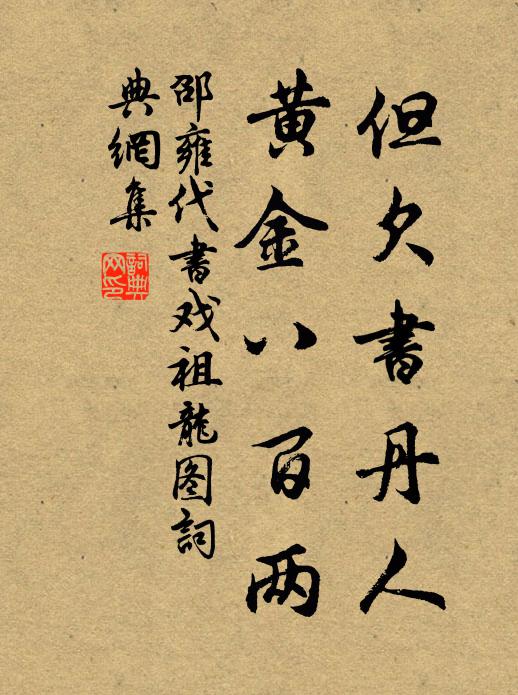 但欠書丹人
黃金八百两
邵雍代書戏祖龍图詞
典網集
詞典
网印